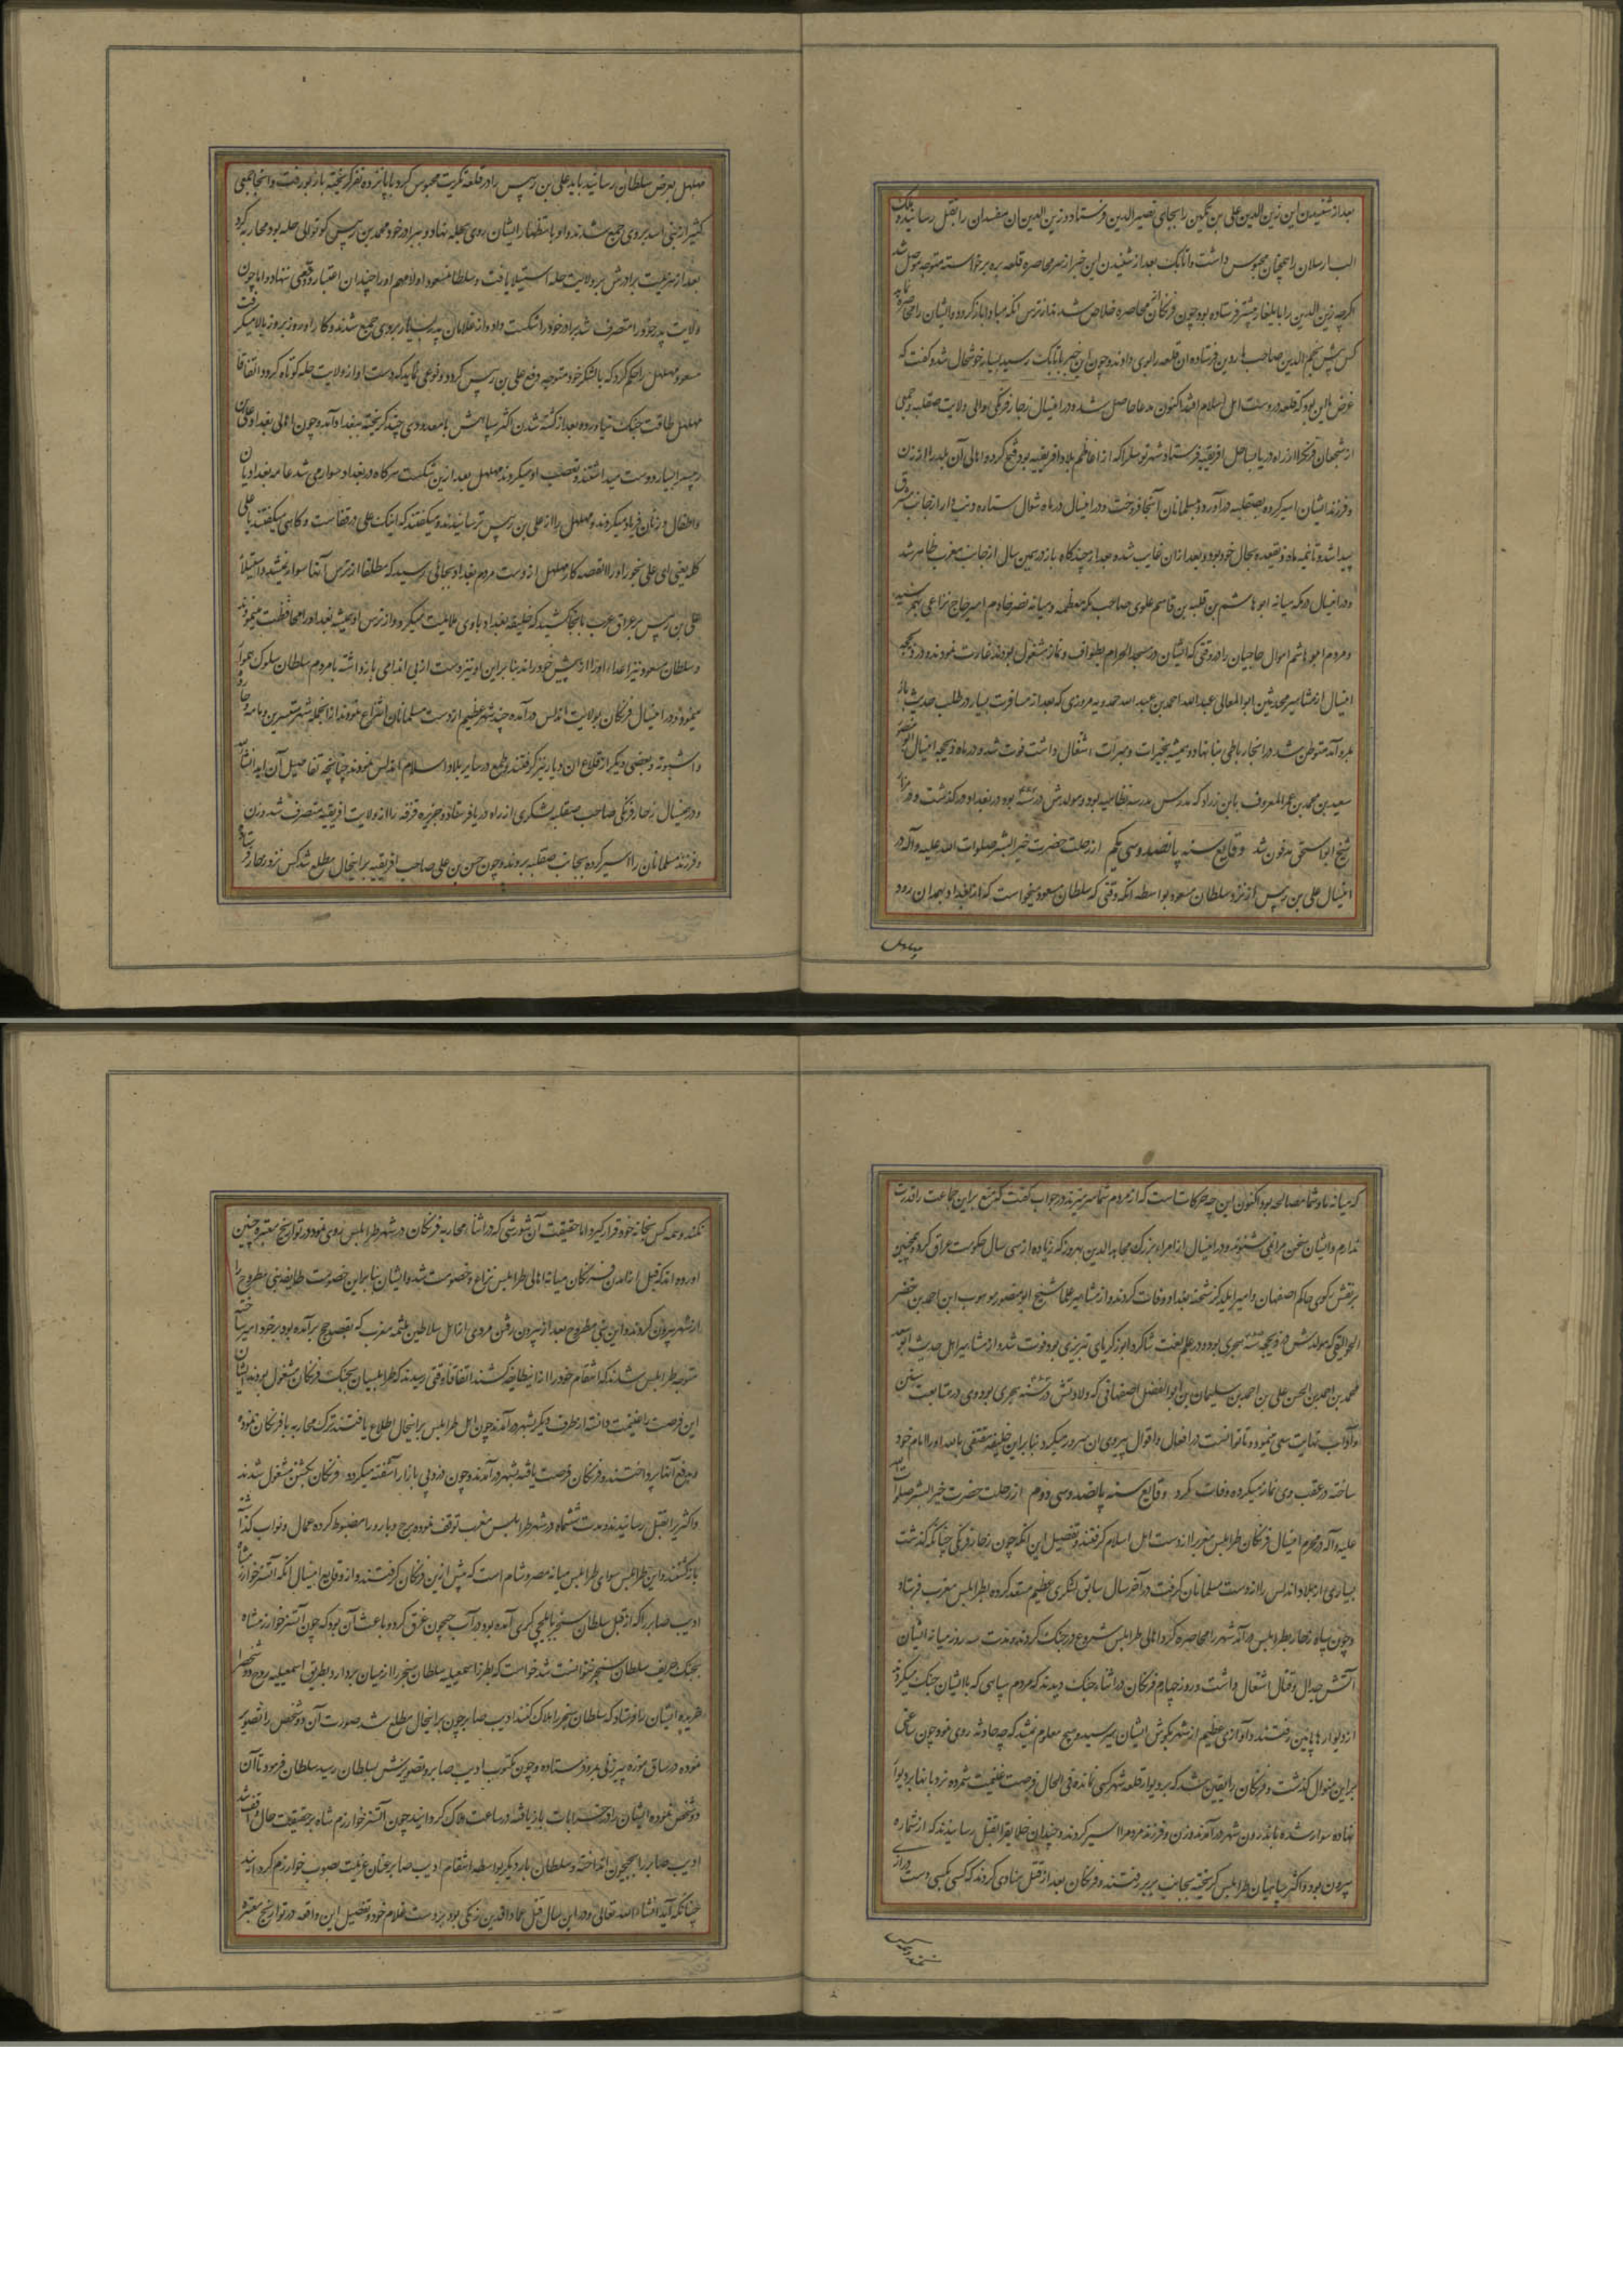 بعد از شنیدن این زین الدین علی بن تکین را بجای نصیر الدین فرستاد و زین الدین ان مفسدان را بقتل رسانید و ملک
الب ارسلان را همچنان محبوس داشت و اتابک بعد از شنیدن این خبر از سر محاصره قلعه بیره برخواسته متوجه موصل شد
اگرچه زین الدین را با یلغار پیشتر فرستاده بود چون فرنکان از محاصره خلاص شدند از ترس انکه مبادا باز کردد و ایشان را محاصره نماید
کس پیش نجم الدین صاحب ماردین فرستاده ان قلعه را بوی دادند و چون این خبر باتابک رسید بسیار خوشحال شد و کفت که
غرض ما این بود که قلعه در دست اهل اسلام افتد اکنون مدعا حاصل شد و در این سال زجار فرنکی والی ولایت صقلیه جمعی
از شجعان فرنک را از راه دریا بساحل افریقیه فرستاد شهر را که از اعاظم بلاد افریقیه بود فتح کرد و اهالی آن بلد را از زن
و فرزند ایشان اسیر کرده بصقلیه در آورد و مسلمانان آنجا فروخت و در اینسال در ماه شوال ستاره دنب دار از جانب مشرق
پیدا شد و تا نیمه ماه ذیقعده بحال خود بود و بعد از ان غایب شده بعد از چند کاه باز در همین سال از جانب مغرب ظاهر شد
و در اینسال در مکه میانه ابو هاشم بن قلیته بن قاسم علوی صاحب مکه معظمه و میانه نضر خادم امیر حاج نزاعی بهم رسید
و مردم ابو هاشم اموال حاجیان را در وقتی که ایشان در مسجد الحرام بطواف و نماز مشغول بودند غارت نمودند و در ذیحجه
اینسال از مشاهیر محدثین ابو المعالی عبد الله احمد بن عبد الله حمدویه مروزی که بعد از مسافرت بسیار در طلب حدیث باز
بمرو آمد متوطن شد و در انجا رباطی بنا نهاد و همیشه بخیرات و مبرات اشتغال داشت فوت شد و در ماه ذیحجه اینسال ابو منصور
سعید بن محمد بن عمر المعروف بابن زراد که مدرس مدرسه نظامیه بود و مولدش در سنه بود در بغداد درکذشت و در مزار
شیخ ابو اسحق مدفون شد وقایع سنه پانصد و سی یکم از رحلت حضرت خیر البشر صلوات الله علیه و آله در
اینسال علی بن دبیس از نزد سلطان مسعود بواسطه انکه وقتی که سلطان مسعود میخواست که از بغداد بهمدان رود
مهلهل
مهلهل بعرض سلطان رسانید باید علی بن دبیس را در قلعه تکریت محبوس کرد با پانزده نفر کریخته باز بور رفت و انجا جمعی
کثیر از بنی اسد بر وی جمع شدند و او باستظهار ایشان روی بحله نهاد و ببرادر خود محمد بن دبیس که توالی حله بود محاربه کرد
بعد از هزیمت برادرش بر ولایت حله استیلا یافت و سلطان مسعود اولا مهم او را چندان اعتبار و وقعی ننهاد و اما چون
ولایت پدر خود را متصرف شد برادر خود را شکست داد و از غلامان پدرش بسیار بر وی جمع شدند و کار او روز بروز بالا میکرفت
مسعود مهلهل را حکم کرد که با لشکر خود متوجه دفع علی بن دبیس کردد و نوعی نماید که دست او از ولایت حله کوتاه کردد اتفاقا
مهلهل طاقت جنک نیاورده بعد از کشته شدن اکثر سپاهش با معدودی چند کریخته ببغداد آمد و چون اهالی بغداد علی بن
دبیس را بسیار دوست میداشتند و تعصب او میکردند مهلهل بعد ازین شکست هرکاه در بغداد سوار می شد عامه بغداد با ان
و اطفال و زنان فریاد میکردند و مهلهل را از علی بن دبیس ترسانیدند و میکفتند که اینک علی در قفاست و کاهی میکفتند یا علی
کله یعنی ای علی بخور او را القصه کار مهلهل از دست مردم بغداد بجائی رسید که مطلقا از ترس آنها سوار نمیشد و استیلا
علی بن دبیس بر عراق عرب تا بجایی کشید که خلیفه بغداد با وی ملایمت میکرد و از ترس او همیشه بغداد را محافظت مینمودند
و سلطان مسعود نیز اعداء او را از پیش خود راند بنابراین او نیز دست از بی اندامی بازداشته با مردم سلطان سلوک هموار
مینمود و در اینسال فرنکان بولایت اندلس درآمده چند شهر عظیم از دست مسلمانان انتزاع نمودند از انجمله شهر
و اشبونه و بعضی دیکر از قلاع ان دیار نیز کرفتند و طمع در سایر بلاد اسلام اندلس نمودند چنانچه تفاصیل آن آید انشاء الله
و در همین سال زجار فرنکی صاحب صقلیه لشکری از راه دریا فرستاد و جزیره قرقنه را از ولایت افریقیه متصرف شد و زن
و فرزند مسلمانان را اسیر کرده بجانب صقلیه بردند و چون حسن بن علی صاحب افریقیه بر اینحال مطلع شد کس نزد زجار فرستاد
که میانه ما و شما مصالحه بود اکنون این چه حرکات است که از مردم شما سر میزند در جواب کفت که منع بر این جماعت را قدرت
ندارم و ایشان سخن مرا نمی شنوند و در اینسال از امراء بزرک مجاهد الدین بهروز که زیاده از سی سال حکومت عراق کرد و همچنین
برنقش زکوی حاکم اصفهان و امیر ایلدکز شحنه بغداد وفات کردند و از مشاهیر علما شیخ ابو منصور موهوب ابن احمد بن خضر
الجوالیقی که مولدش ذیحجه سنه هجری بود و در علم لغت شاکرد ابو زکریای تبریزی بود فوت شد و از مشاهیر اهل حدیث ابو سعد
محمد بن احمد بن الحسن علی بن احمد بن سلیمان بن ابو الفضل اصفهانی که ولادتش در سنه هجری بود و وی در متابعت سنن
و آداب نهایت سعی مینمود و تا توانست در افعال و اقوال پیروی ان سرور میکرد بنابراین خلیفه مقتفی بالله او را امام خود
ساخته در عقب وی نماز میکرده وفات کرد وقایع سنه پانصد و سی دوم از رحلت حضرت خیر البشر صلوات الله
علیه و آله در محرم اینسال فرنکان طرابلس مغرب را از دست اهل اسلام کرفتند و تفصیل این انکه چون زجار فرنکی چنانکه کذشت
بسیاری از بلاد اندلس را از دست مسلمانان کرفت در آخر سال سابق لشکری عظیم مستعد کرده بطرابلس مغرب فرستاد
و چون سپاه زجار بطرابلس درآمد شهر را محاصره کرد و اهالی طرابلس شروع در جنک کردند و مدت سه روز میانه ایشان
آتش جدال و قتال اشتغال داشت و روز چهارم فرنکان در اثناء جنک دیدند که مردم سپاهی که با ایشان جنک میکردند
از دیوارها پایین رفتند و آوازی عظیم از شهر بکوش ایشان میرسید و هیچ معلوم نمیشد که چه حادثه روی نمود چون ساعتی
بر این منوال کذشت و فرنکان را یقین شد که بر دیوار قلعه شهر کسی نمانده فی الحال فرصت غنیمت شمرده نردبانها بر دیوار
نهاده سوار شده باندرون شهر درآمدند و زن و فرزند مردم را اسیر کردند و چندان خلایق را بقتل رسانیدند که از شماره
بیرون بود و اکثر سپاهیان طرابلس کریخته بجانب بربر رفتند و فرنکان بعد از قتل منادی کردند که کسی بکسی دست درازی
نکنند و همه کس بخانه خود قرار کیرد و اما حقیقت آن شورشی که در اثناء محاربه فرنکان در شهر طرابلس روی نمود در تواریخ معتبره چنین
آورده اند که قبل از آمدن فرنکان میانه اهالی طرابلس نزاع و خصومت شد و ایشان بنابراین خصومت طایفه بنی مطروح را
از شهر بیرون کردند و این بنی مطروح بعد از بیرون رفتن مردی را از اهل سلاطین ملثمه مغرب که بقصد حج برآمده بود بر خود امیر ساخته
متوجه طرابلس شدند که انتقام خود را از انطایفه کشند اتفاقا وقتی رسیدند که طرابلسیان بجنک فرنکان مشغول بودند ایشان
این فرصت را غنیمت دانسته از طرف دیکر بشهر درآمدند چون اهل طرابلس بر اینحال اطلاع یافتند ترک محاربه با فرنکان نموده
بدفع آنها پرداختند و فرنکان فرصت یافته بشهر درآمدند چون دزدی بازار آشفته میکردد فرنکان بکشتن مشغول شدند
و اکثر را بقتل رسانیدند و مدت ششماه در شهر طرابلس مغرب توقف نموده برج و بارو را مضبوط کرده عمال و نواب کذاشته
بازکشتند و این طرابلس سوای طرابلس میانه مصر و شام است که پیش ازین فرنکان کرفتند و از وقایع اینسال انکه آتسز خوارزمشاه
ادیب صابر را که از قبل سلطان سنجر بایلچی کری آمده بود در آب جیحون غرق کرد و باعث آن بود که چون آتسز خوارزمشاه
بجنک حریف سلطان سنجر نتوانست شد خواست که بطرز اسمعیلیه سلطان سنجر را از میان بردارد بطریق اسمعیلیه دو شخص را
فریب داده ایشان را فرستاد که سلطان سنجر را هلاک کنند ادیب صابر چون بر اینحال مطلع شد صورت آن دو شخص را تصویر
نموده در ساق موزه پیر زنی بمرو فرستاده و چون مکتوب ادیب صابر و تصویرش بسلطان رسید سلطان فرمود تا آن
دو شخص نموده ایشان را در خرابات بازیافته در ساعت هلاک کردانید چون آتسز خوارزم شاه بر حقیقت حال واقف شد
ادیب صابر را بجیحون انداخته و سلطان بار دیکر بواسطه انتقام ادیب صابر عنان عزیمت بصوب خوارزم کردانید
چنانکه آید انشاء الله تعالی و در این سال قتل عماد الدین زنکی بود بر دست غلام خود و تفصیل این واقعه در تواریخ معتبره